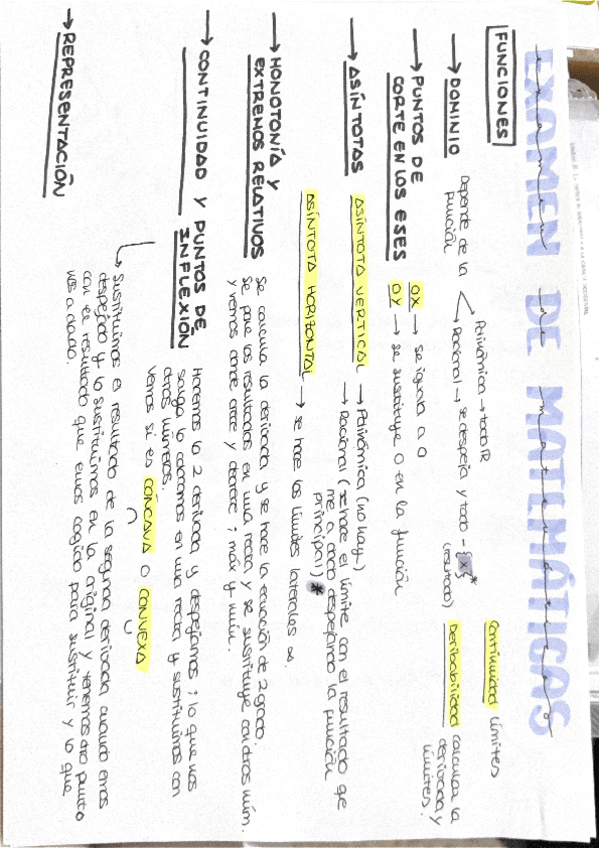 EXAMEN DE MATEMÁTICAS
examen de matemáticas
FUNCIONES
Continuidad límites
Derivabilidad calcular la
derivada y
límites.
→ DOMINIO Depende de la
función
Polinómica → todo ℝ
Racional → se despeja y todo - {x}*
(resultado)
→ PUNTOS DE
CORTE EN LOS EJES
OX → se iguala a 0
OY → se sustituye 0 en la función
→ ASÍNTOTAS ASÍNTOTA VERTICAL → Polinómica (no hay)
→ Racional (se hace el límite con el resultado que
me a dado despejando la función
principal) *
ASÍNTOTA HORIZONTAL → se hace los límites laterales ∞.
→ MONOTONÍA Y
EXTREMOS RELATIVOS
Se calcula la derivada y se hace la ecuación de 2 grado.
Se pone los resultados en una recta, y se sustituye con otros núm.
y vemos donde crece y decrece ; máx y mín.
→ CONTINUIDAD Y PUNTOS DE
INFLEXIÓN
Hacemos la 2 derivada y despejamos ; lo que nos
salga lo colocamos en una recta y sustituimos con
otros números.
Vemos si es CÓNCAVA O CONVEXA
↳ Sustituimos el resultado de la segunda derivada cuando emos
despejado y lo sustituimos en la original y tenemos otro punto
con el resultado que emos cogido para sustituir y lo que
nos a dado.
→ REPRESENTACIÓN